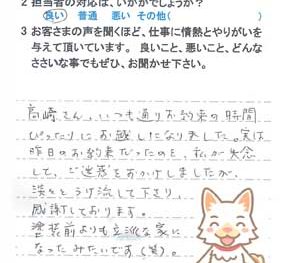 2 担当者の対応は、いかがでしょうか?
良い 普通 悪い その他( )
3 お客さまの声を聞くほど、仕事に情熱とやりがいを
与えて頂いています。 良いこと、悪いこと、どんな
ささいな事でもぜひ、お聞かせ下さい。
高崎さん、いつも通りお約束の時間
ぴったりにお越しになりました。実は
昨日のお約束だったのを、私が失念
して、ご迷惑をおかけしましたが、
淡々とうけ流して下さり、
感謝しております。
塗装前よりも立派な家に
なったみたいです(笑)。